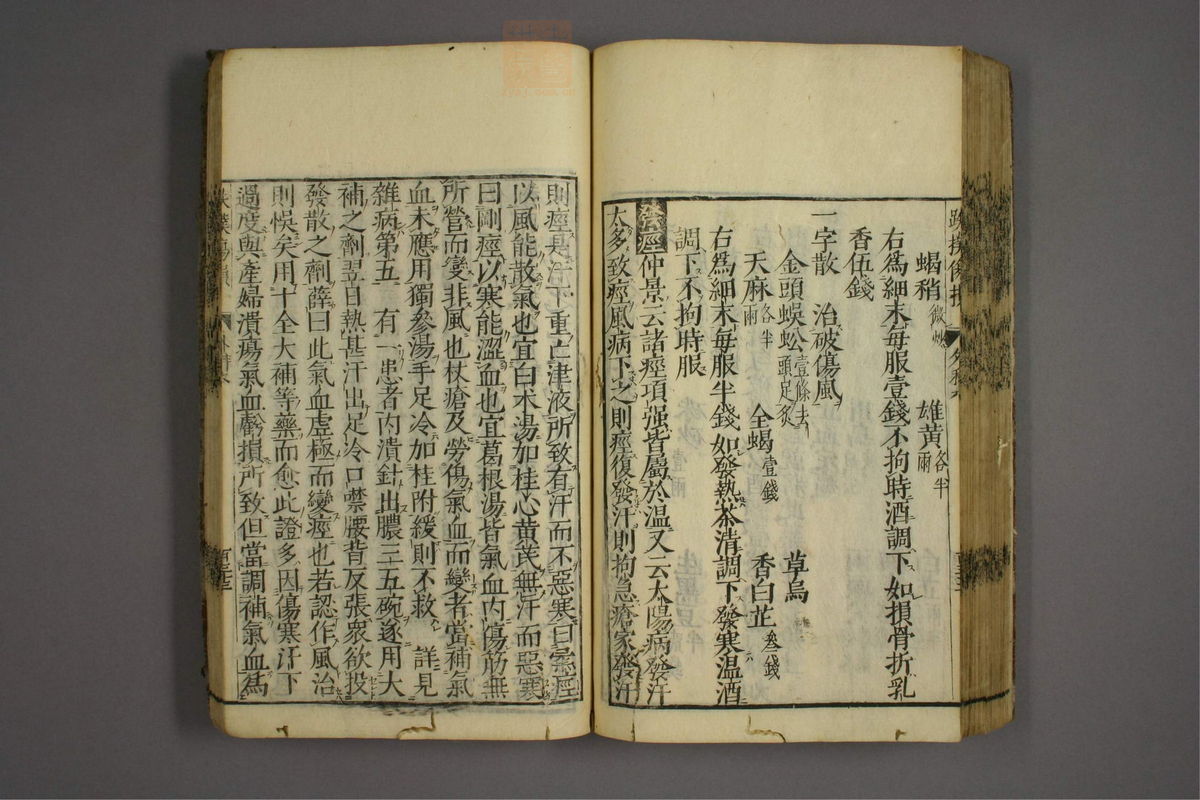 蝎稍微炒　雄黃各半兩
右爲細末每服壹錢不拘時酒調下如損骨折乳
香伍錢
一字散　治破傷風
金頭蜈蚣壹條去頭足炙　全蝎壹錢　草烏
天麻各半兩　香白芷叁錢
右爲細末每服半錢如發熱茶清調下發寒温酒
調下不拘時服
發痙仲景云諸痙項强皆屬於溫又云太陽病發汗
太多致痙風病下之則痙復發汗則拘急瘡家發汗
則痙是汗下重亡津液所致有汗而不惡寒曰柔痙
以風能散氣也宜白木湯加桂心黃芪無汗而惡寒
曰剛痙以寒能澀血也宜葛根湯皆氣血內傷筋無
所營而變非風也杖瘡及勞傷氣血而變者當補氣
血未應用獨參湯手足冷加桂附緩則不救　詳見
雜病第五　有一患者內潰針出膿三五碗遂用大
補之劑翌日熱甚汗出足冷口噤腰背反張衆欲投
發散之劑薛曰此氣血虛極而變痙也若認作風治
則悞矣用十全大補等藥而愈此證多因傷寒汗下
過度與產婦潰瘍氣血虧損所致但當調補氣血爲